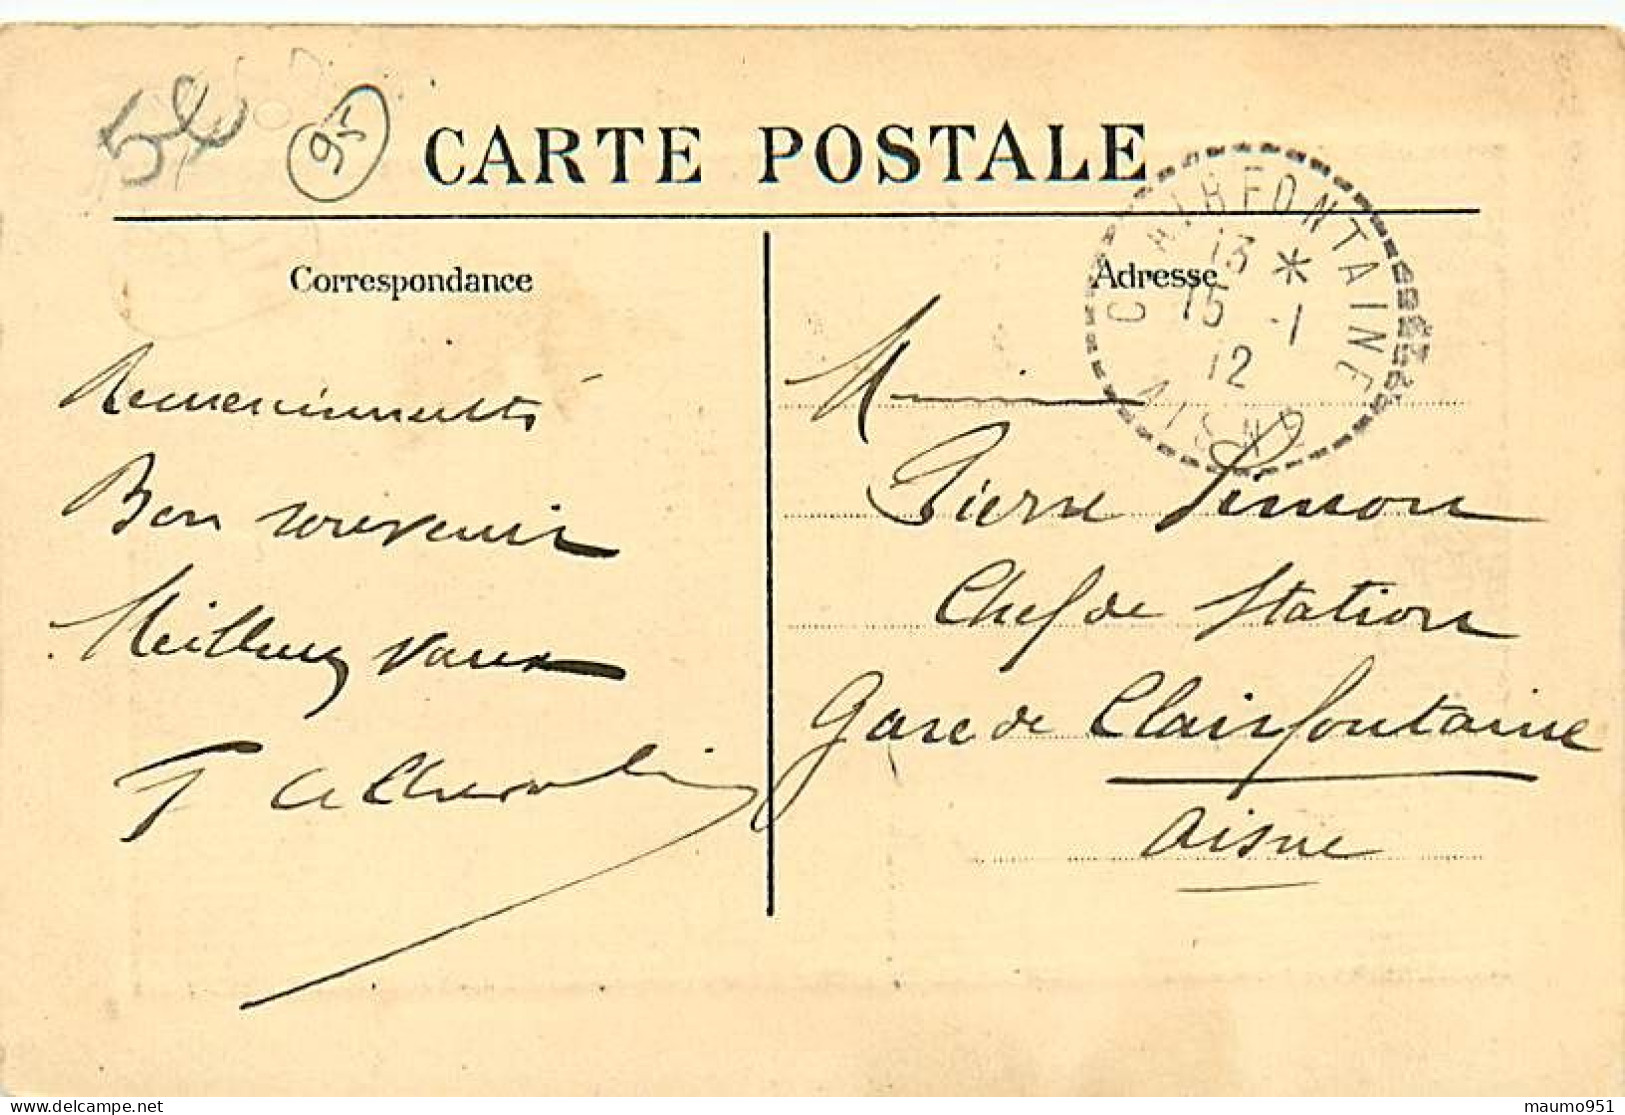 54
95
CARTE POSTALE
CLAIRFONTAINE
13 *
15 -1
12
AISNE
Correspondance
Adresse
Remerciements
Bon souvenir
Meilleurs vœux
Monsieur
Pierre Simon
Chef de Station
Gare de Clairfontaine
Aisne
delcampe.net
maumo951